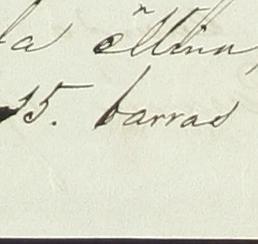 la última
15. barras